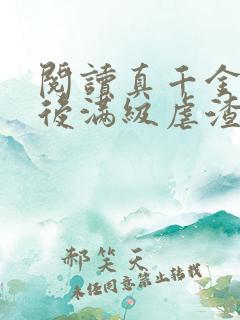 閱讀真千金
後滿級虐渣
郝笑天
未經同意禁止轉載